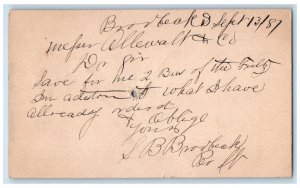 Brodbecks Sept 13/87
Messr Allewalt & Co
Dr Sir
Save for me 2 Bus of the Fultz
In adition to what I have
Allready orderd
& Oblige
Yours
B Brodbeck